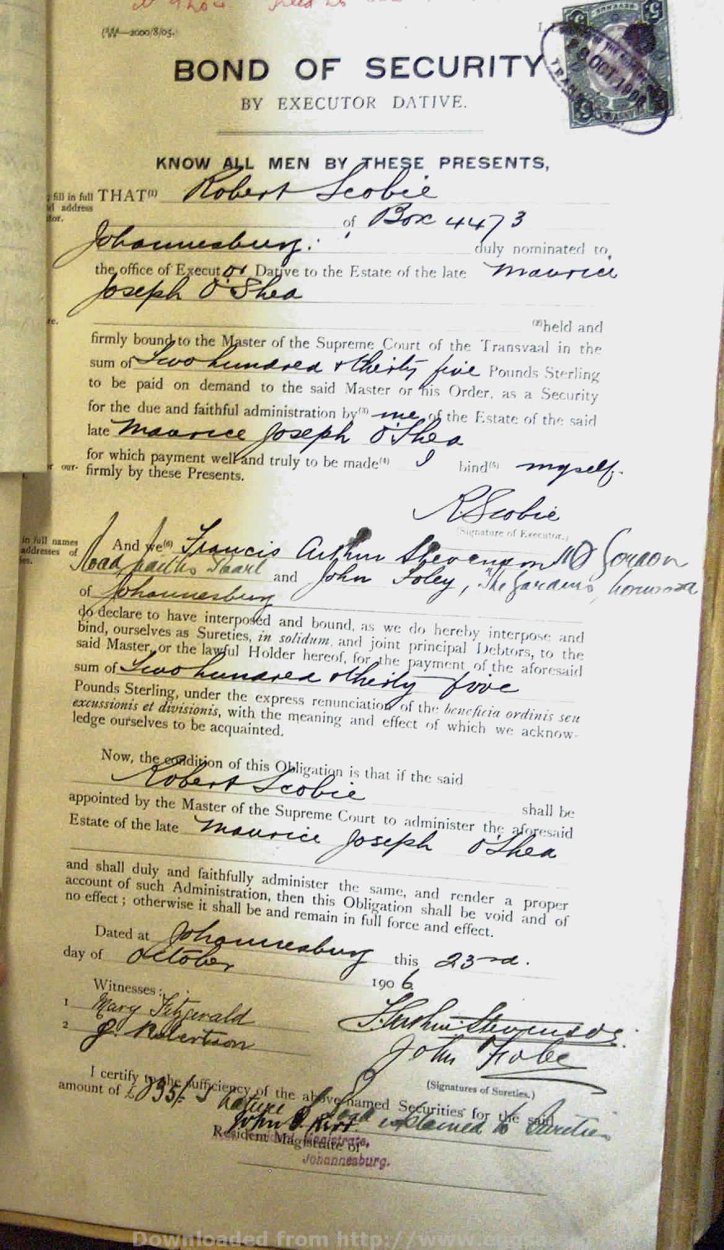 (W—2000/8/05.
L
BOND OF SECURITY
BY EXECUTOR DATIVE.
KNOW ALL MEN BY THESE PRESENTS,
fill in full THAT(1) Robert Scobie
address
of Box 4473
Johannesburg. duly nominated to
the office of Executor Dative to the Estate of the late Maurice
Joseph O'Shea
(2)held and
firmly bound to the Master of the Supreme Court of the Transvaal in the
sum of Two hundred & thirty five Pounds Sterling
to be paid on demand to the said Master or his Order, as a Security
for the due and faithful administration by(3) me of the Estate of the said
late Maurice Joseph O'Shea
for which payment well and truly to be made(4) I bind(5) myself.
firmly by these Presents.
R Scobie
(Signature of Executor.)
in full names
addresses of
And we(6) Francis Arthur Stevenson Gordon
Road and John Foley, The Gardens, Norwood
of Johannesburg
do declare to have interposed and bound, as we do hereby interpose and
bind, ourselves as Sureties, in solidum, and joint principal Debtors, to the
said Master, or the lawful Holder hereof, for the payment of the aforesaid
sum of Two hundred & thirty five
Pounds Sterling, under the express renunciation of the beneficia ordinis seu
excussionis et divisionis, with the meaning and effect of which we acknow-
ledge ourselves to be acquainted.
Now, the condition of this Obligation is that if the said
Robert Scobie shall be
appointed by the Master of the Supreme Court to administer the aforesaid
Estate of the late Maurice Joseph O'Shea
and shall duly and faithfully administer the same, and render a proper
account of such Administration, then this Obligation shall be void and of
no effect; otherwise it shall be and remain in full force and effect.
Dated at Johannesburg this 23rd.
day of October 1906
Witnesses:
1 Mary Fitzgerald
2 Robertson
F. Arthur Stevenson
John
(Signatures of Sureties.)
I certify to the sufficiency of the above-named Securities for the said
amount of £235/- & nature of bond explained to Sureties
John
Resident Magistrate of
Johannesburg.
Downloaded from http://www.eggsa.org